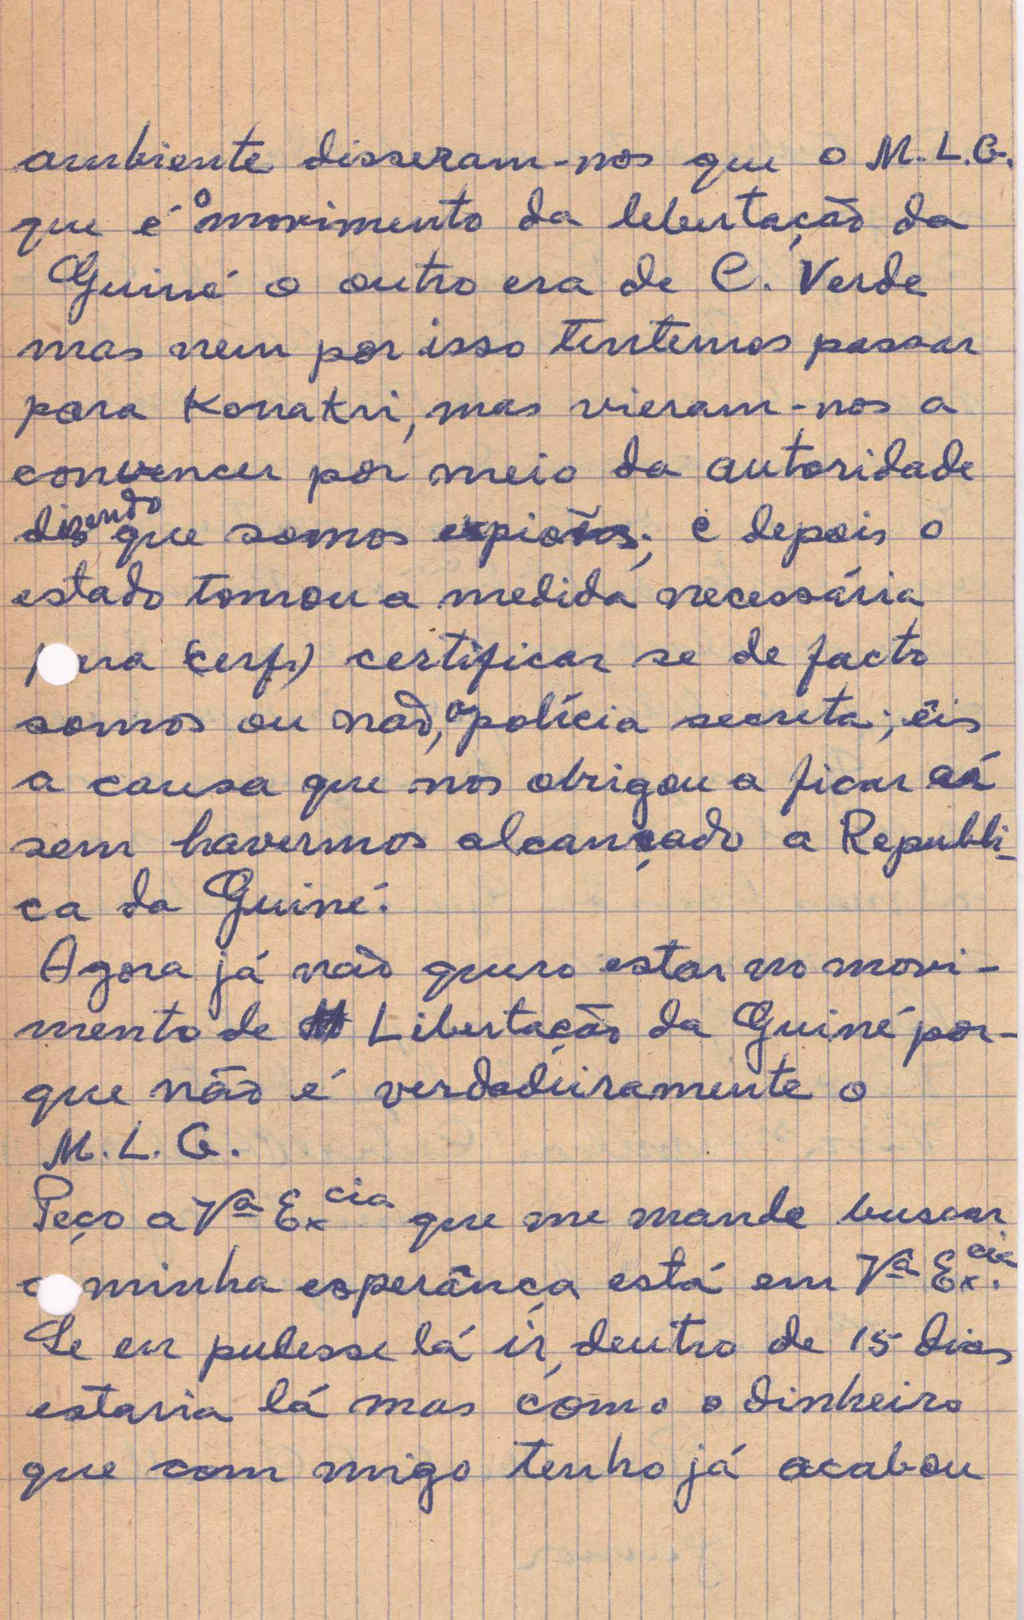 ambiente disseram-nos que o M.L.G.
que é o movimento da libertação da
Guiné o outro era de C. Verde
mas nem por isso tentemos passar
para Konakri, mas vieram-nos a
convencer por meio da autoridade
dizendo que somos espiões; e depois o
estado tomou a medida necessária
para (cerf) certificar se de facto
somos ou não, a polícia secreta; éis
a causa que nos obrigou a ficar cá
sem havermos alcançado a Republi-
ca da Guiné.
Agora já não quero estar no movi-
mento de Libertação da Guiné por-
que não é verdadeiramente o
M.L.G.
Peço a Vª Excia que me mande buscar
a minha esperânca está em Vª Excia.
Se eu pudesse lá ir, dentro de 15 dias
estaria lá mas como o dinheiro
que com migo tenho já acabou